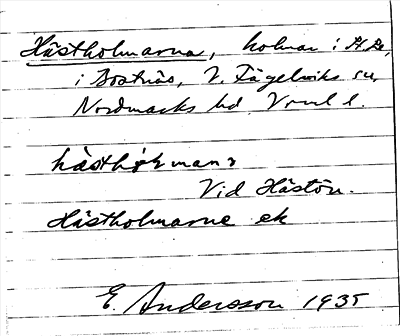 Hästholmarna, holmar i St. Le,
i Bostnäs, V. Fågelviks sn,
Nordmarks hd Vrml l.
Vid Hästön.
Hästholmarne ek
E. Andersson 1935